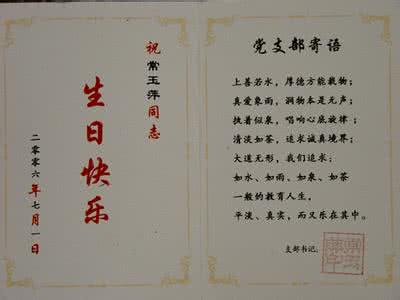 祝
常玉萍同志
生日快乐
二零零六年七月一日
党支部寄语
上善若水,厚德方能载物;
真爱象雨,润物本是无声;
执着似泉,唱响心底旋律;
清淡如茶,追求诚真境界;
大道无形,我们追求:
如水、如雨、如泉、如茶
一般的教育人生,
平淡、真实,而又乐在其中。
支部书记: